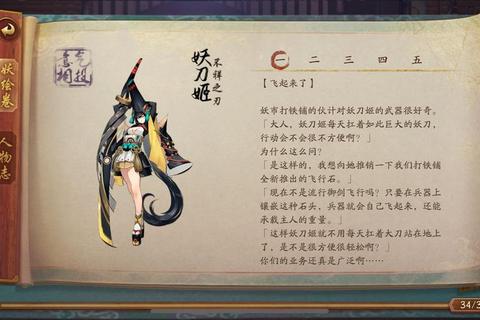 妖绘卷
人物志
意气
相投
妖刀姬
不祥之刃
一 二 三 四 五
【飞起来了】
妖市打铁铺的伙计对妖刀姬的武器很好奇。
「大人，妖刀姬每天扛着如此巨大的妖刀，
行动会不会很不方便啊？」
为什么这么问？
「是这样的，我想向她推销一下我们打铁铺
全新推出的飞行石。」
「现在不是流行御剑飞行吗？只要在兵器上
镶嵌这种石头，兵器就会自己飞起来，还能
承载主人的重量。」
「这样妖刀姬就不用每天扛着大刀站在地上
了，是不是很方便很轻松啊？」
你们的业务还真是广泛啊……
34/3